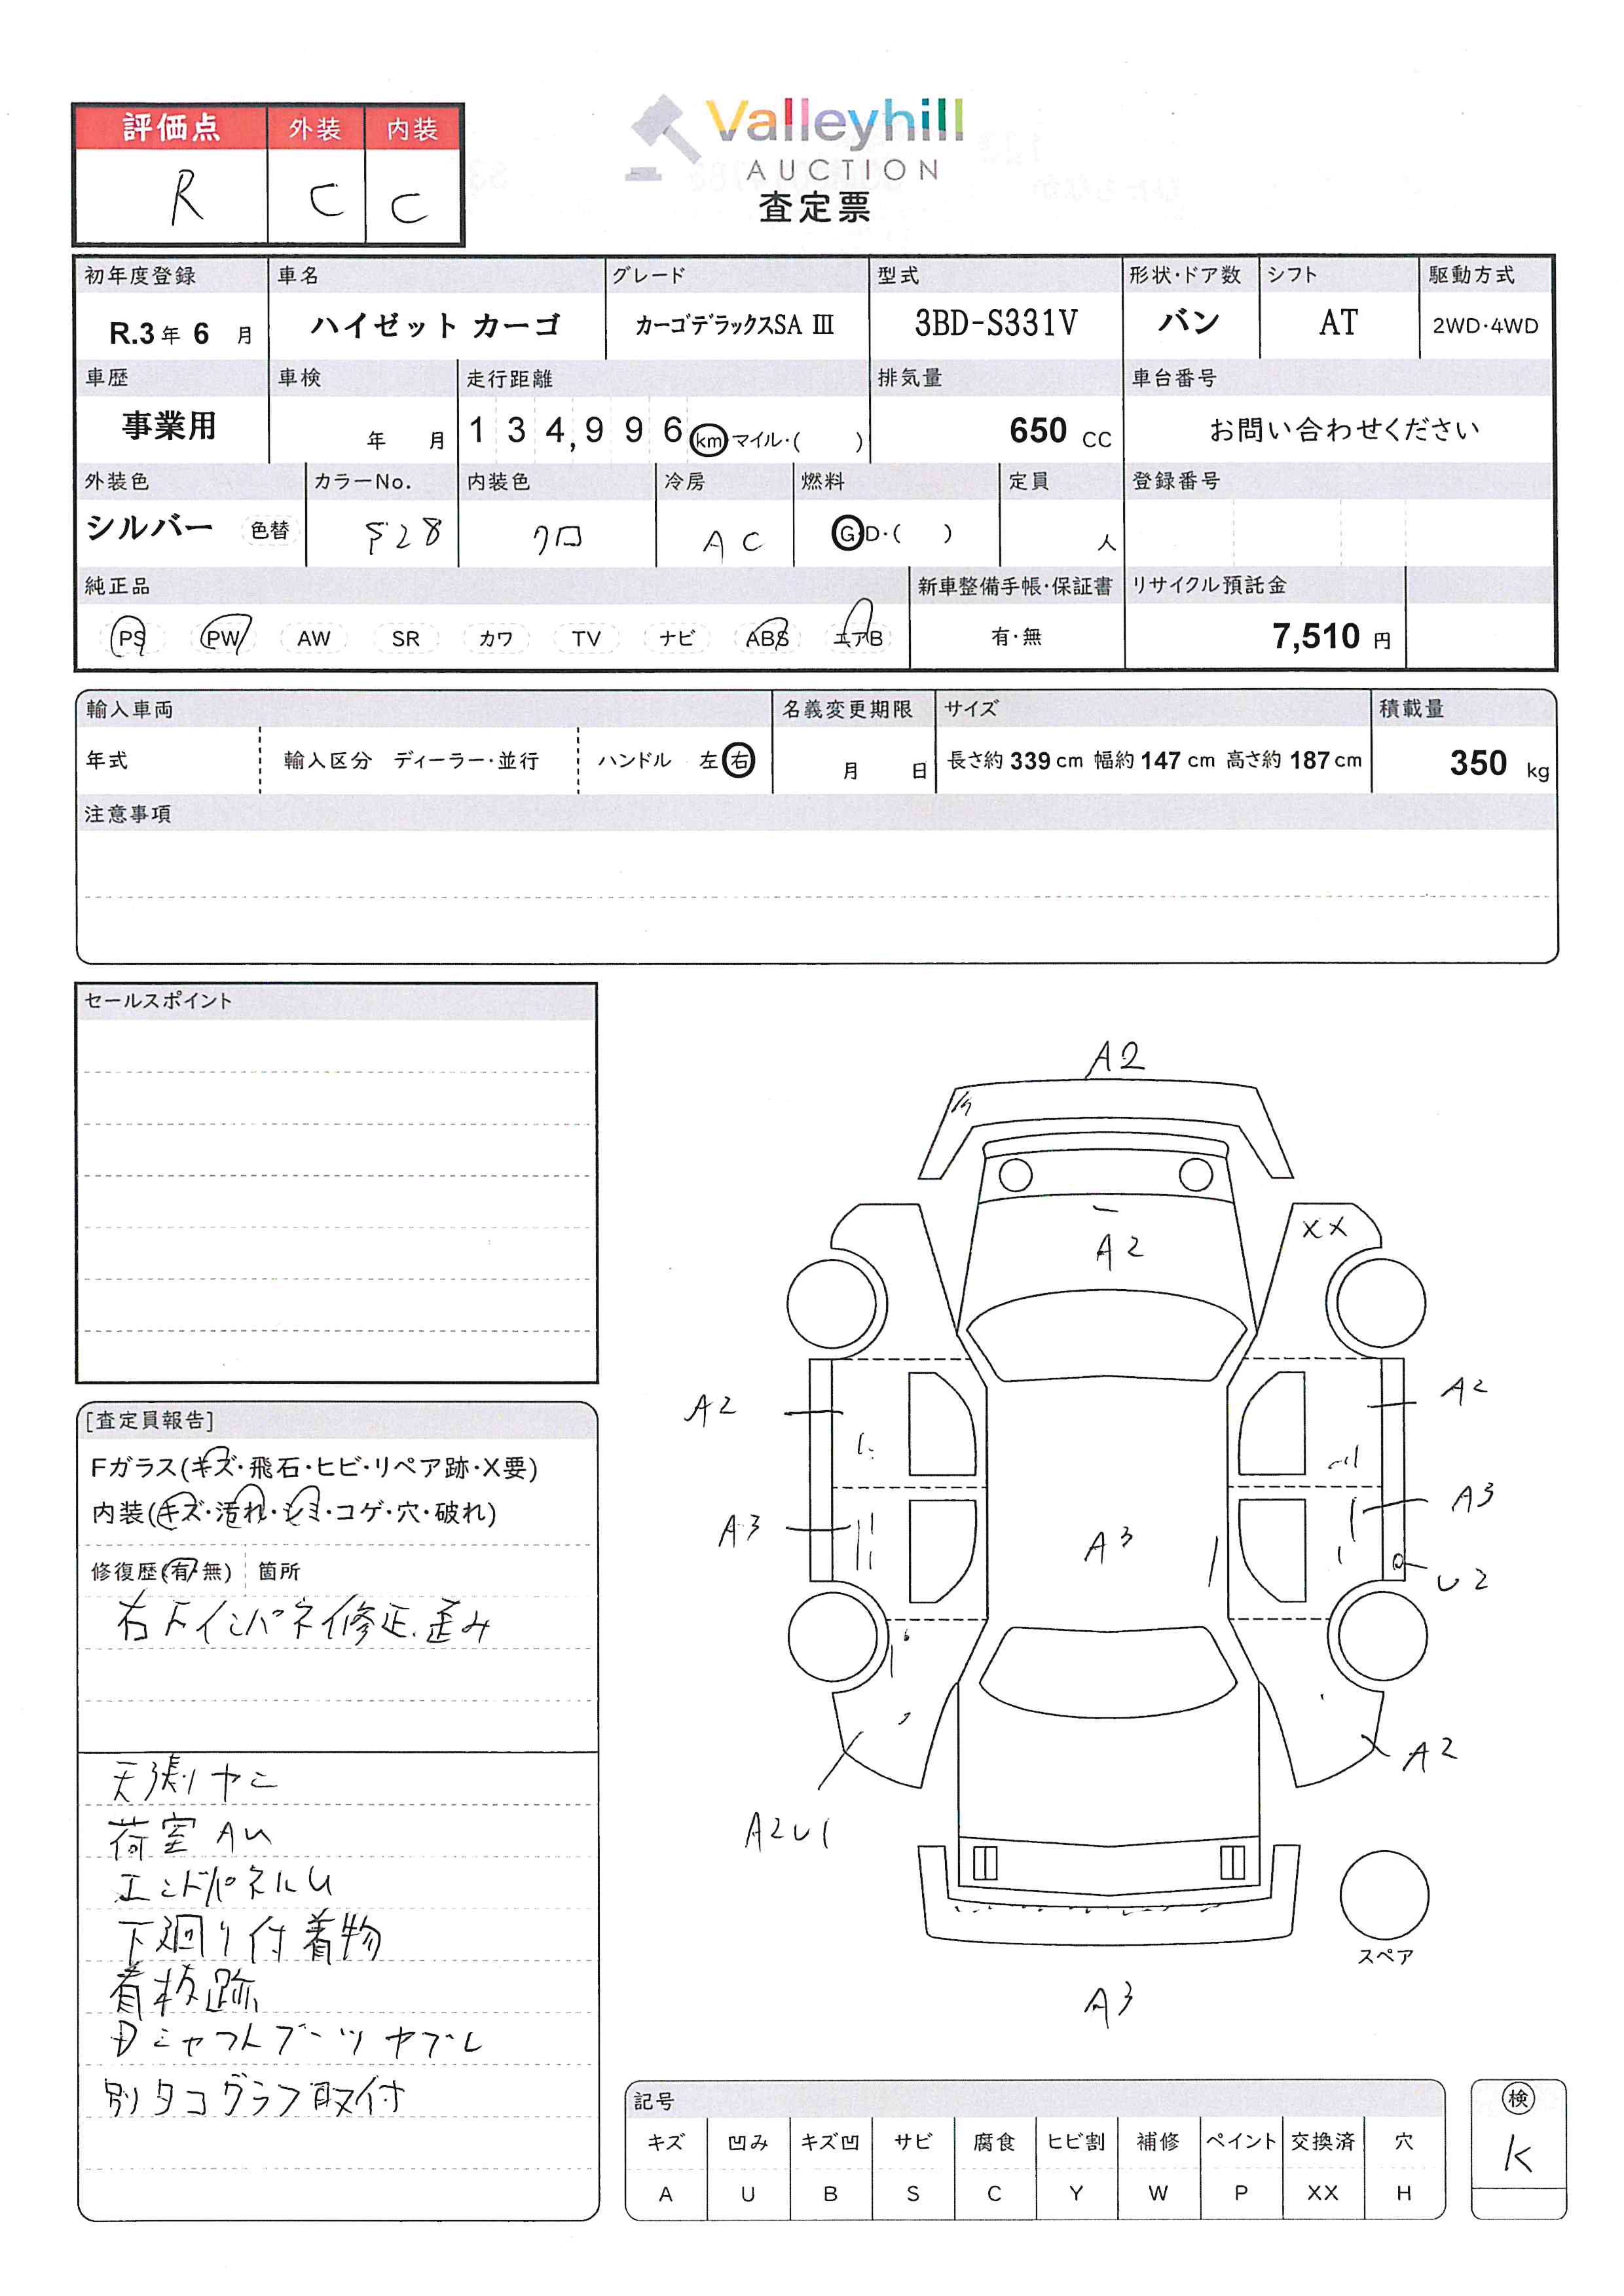 評価点 外装 内装
R C C
Valleyhill
AUCTION
査定票
初年度登録 車名 グレード 型式 形状・ドア数 シフト 駆動方式
R.3年 6 月 ハイゼット カーゴ カーゴデラックスSA III 3BD-S331V バン AT 2WD・4WD
車歴 車検 走行距離 排気量 車台番号
事業用 年 月 134,996 km マイル・( ) 650 CC お問い合わせください
外装色 カラーNo. 内装色 冷房 燃料 定員 登録番号
シルバー 色替 S28 クロ AC G・D・( ) 人
純正品 新車整備手帳・保証書 リサイクル預託金
PS PW AW SR カワ TV ナビ ABS エアB 有・無 7,510 円
輸入車両 名義変更期限 サイズ 積載量
年式 輸入区分 ディーラー・並行 ハンドル 左 右 月 日 長さ約 339 cm 幅約 147 cm 高さ約 187 cm 350 kg
注意事項
セールスポイント
A2
XX
A2
A2
A2
A3
A3
A3
U2
A2
A2U1
スペア
A3
[査定員報告]
Fガラス(キズ・飛石・ヒビ・リペア跡・X要)
内装(キズ・汚れ・シミ・コゲ・穴・破れ)
修復歴(有・無) 箇所
右Fインパネ修正.歪み
天張りヤニ
荷室AU
エンドパネルU
下廻り付着物
看板跡
Dシャフトブーツヤブレ
別タコグラフ取付
記号
キズ 凹み キズ凹 サビ 腐食 ヒビ割 補修 ペイント 交換済 穴
A U B S C Y W P XX H
検
K